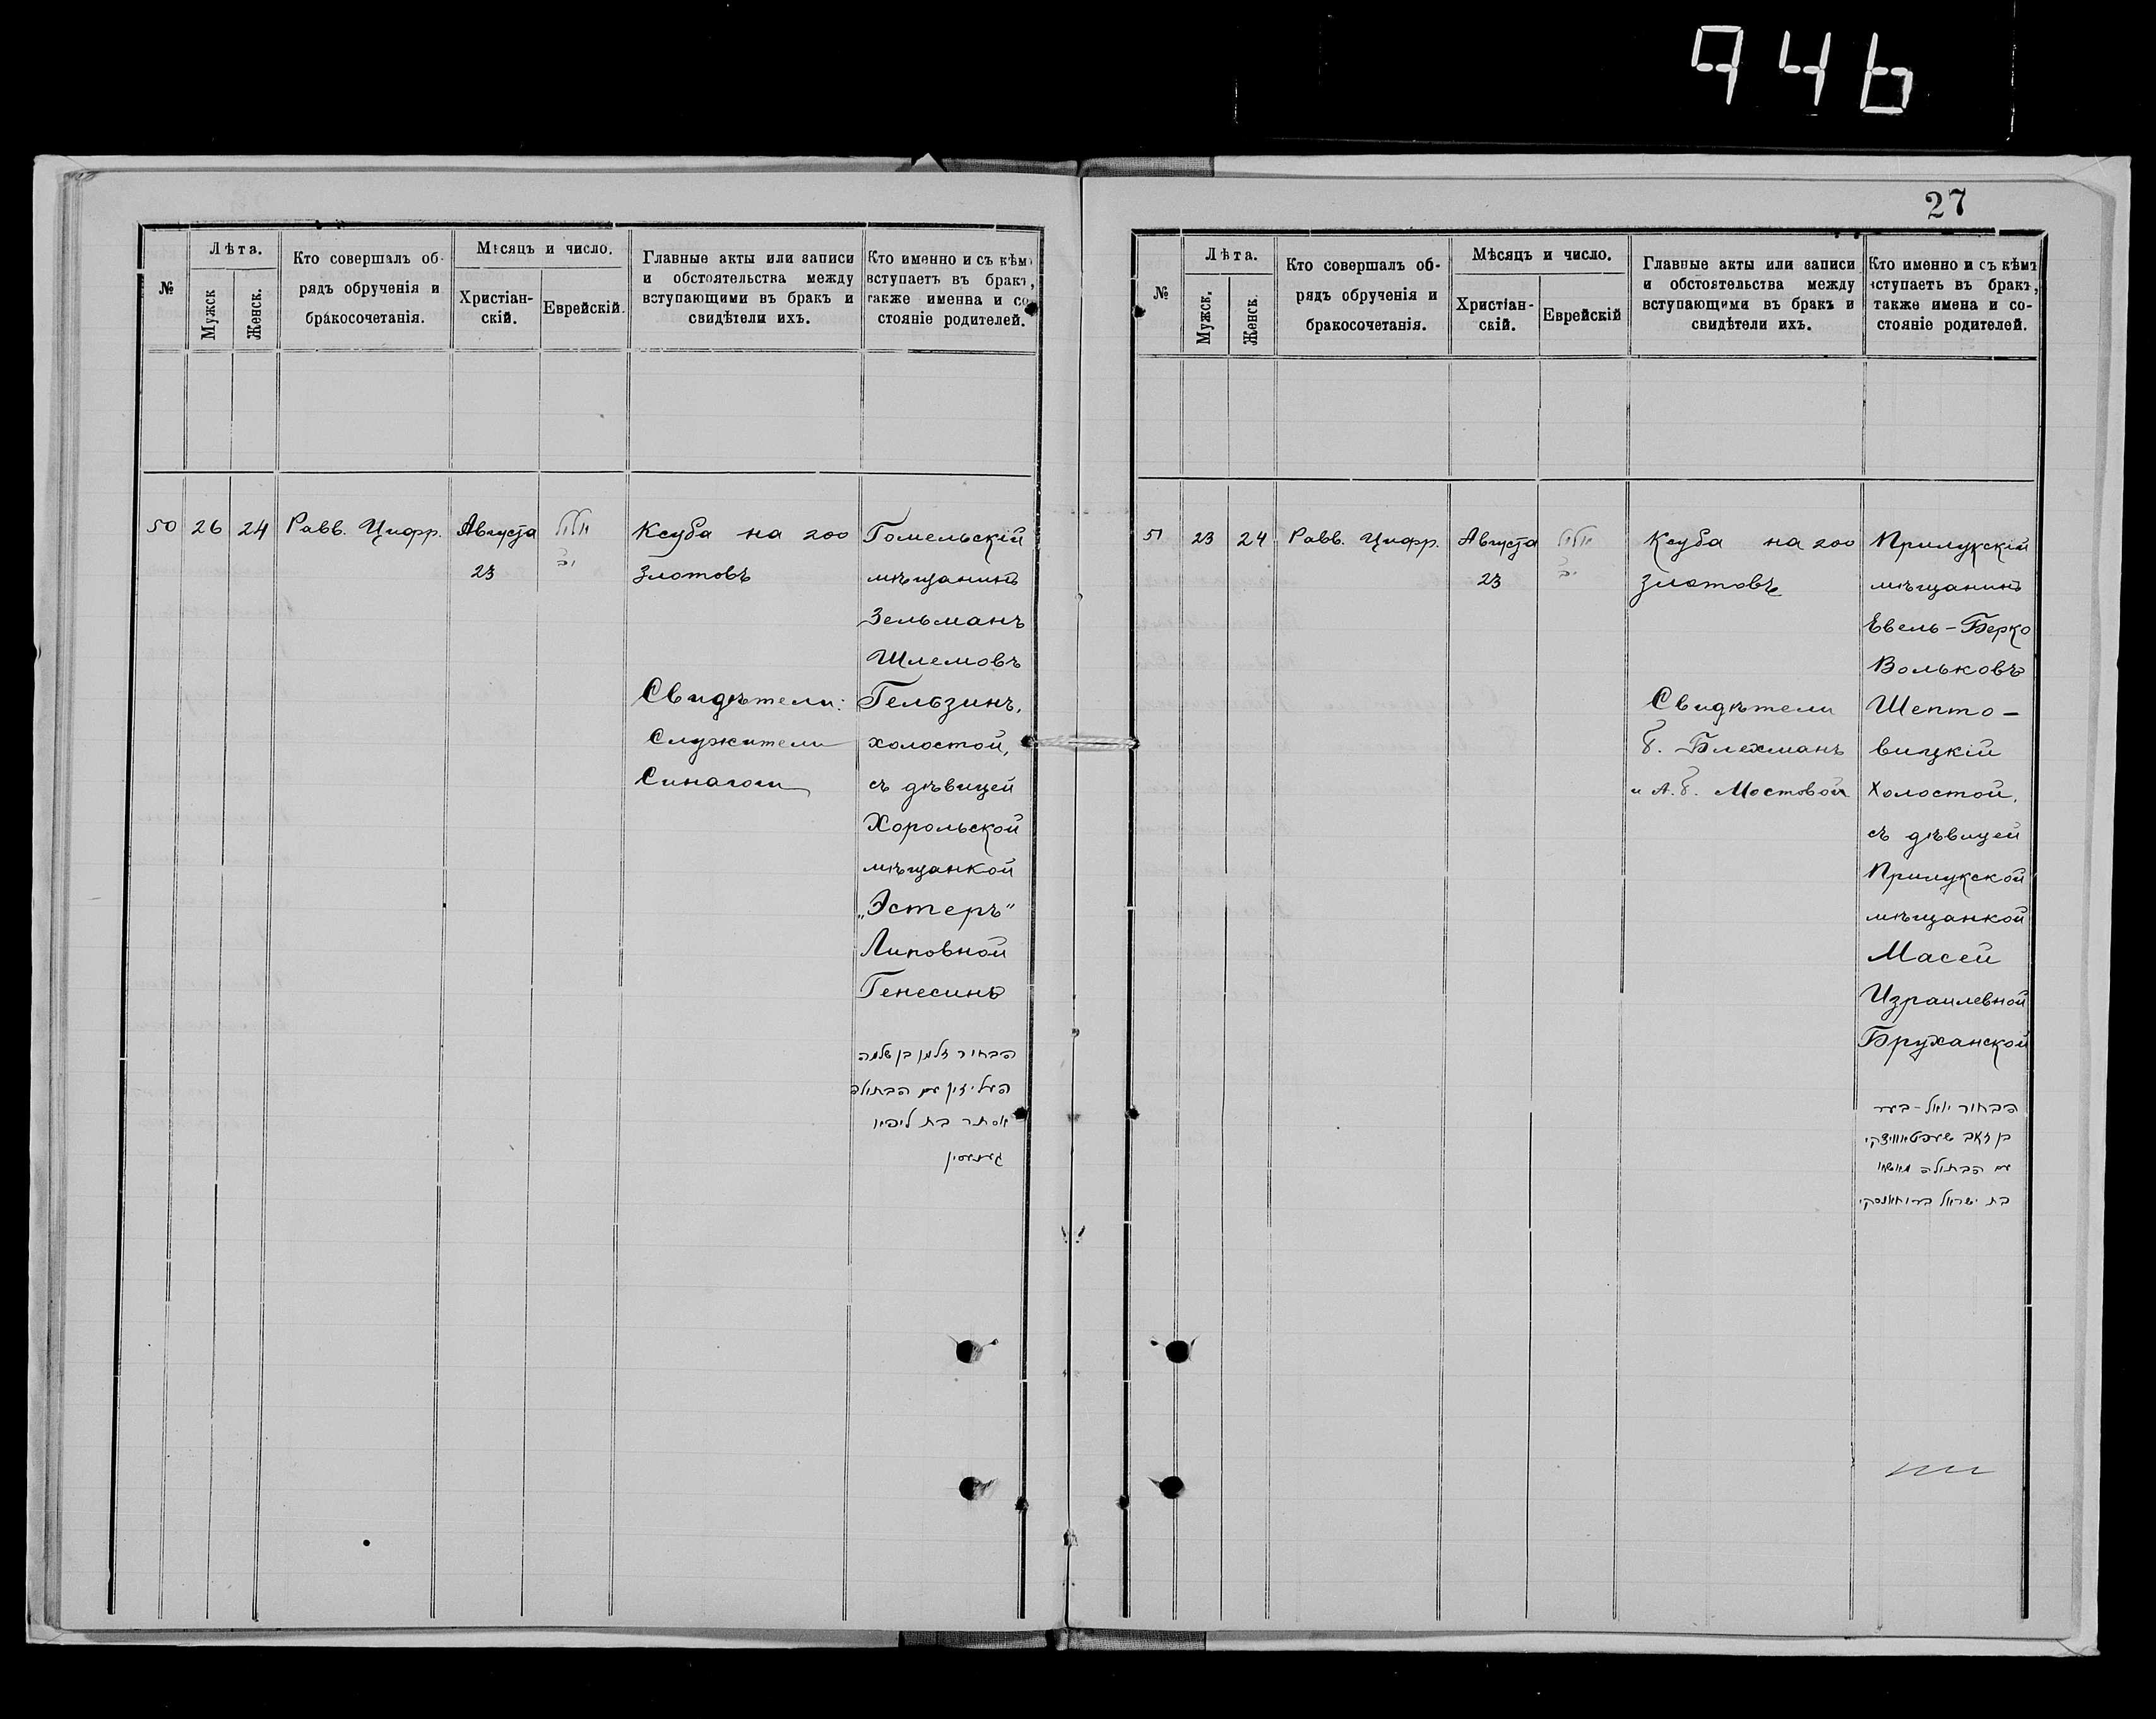 946
27
№
Лѣта.
Мужск
Женск.
Кто совершалъ об-
рядъ обрученія и
бракосочетанія.
Мѣсяцъ и число.
Христіан-
скій.
Еврейскій.
Главные акты или записи
и обстоятельства между
вступающими въ бракъ и
свидѣтели ихъ.
Кто именно и съ кѣмъ
вступаетъ въ бракъ,
также имена и со-
стояніе родителей.
50 26 24 Равв. Цифр. Августа
23
Ксуба на 200
злотовъ
Свидѣтели:
Служители
Синагоги
Гомельскій
мѣщанинъ
Зельманъ
Шлемовъ
Гельзинъ,
холостой,
съ дѣвицей
Хорольской
мѣщанкой
„Эстеръ"
Липовной
Генесинъ
הבחור זלמן בן שלמה
העלזין עם הבתולה
אסתר בת ליפא
געניסין
№
Лѣта.
Мужск.
Женск.
Кто совершалъ об-
рядъ обрученія и
бракосочетанія.
Мѣсяцъ и число.
Христіан-
скій.
Еврейскій
Главные акты или записи
и обстоятельства между
вступающими въ бракъ и
свидѣтели ихъ.
Кто именно и съ кѣмъ
вступаетъ въ бракъ,
также имена и со-
стояніе родителей.
51 23 24 Равв. Цифр. Августа
23
Ксуба на 200
злотовъ
Свидѣтели
Б. Блехманъ
и А. Б. Мостовой
Прилукскій
мѣщанинъ
Евель-Берко
Вольковъ
Шепто-
вицкій
Холостой,
съ дѣвицей
Прилукской
мѣщанкой
Масей
Израилевной
Бруханской
הבחור יואל-בער
בן זאב שעפטאוויצקי
עם הבתולה מאשא
בת ישראל ברוחאנסקי